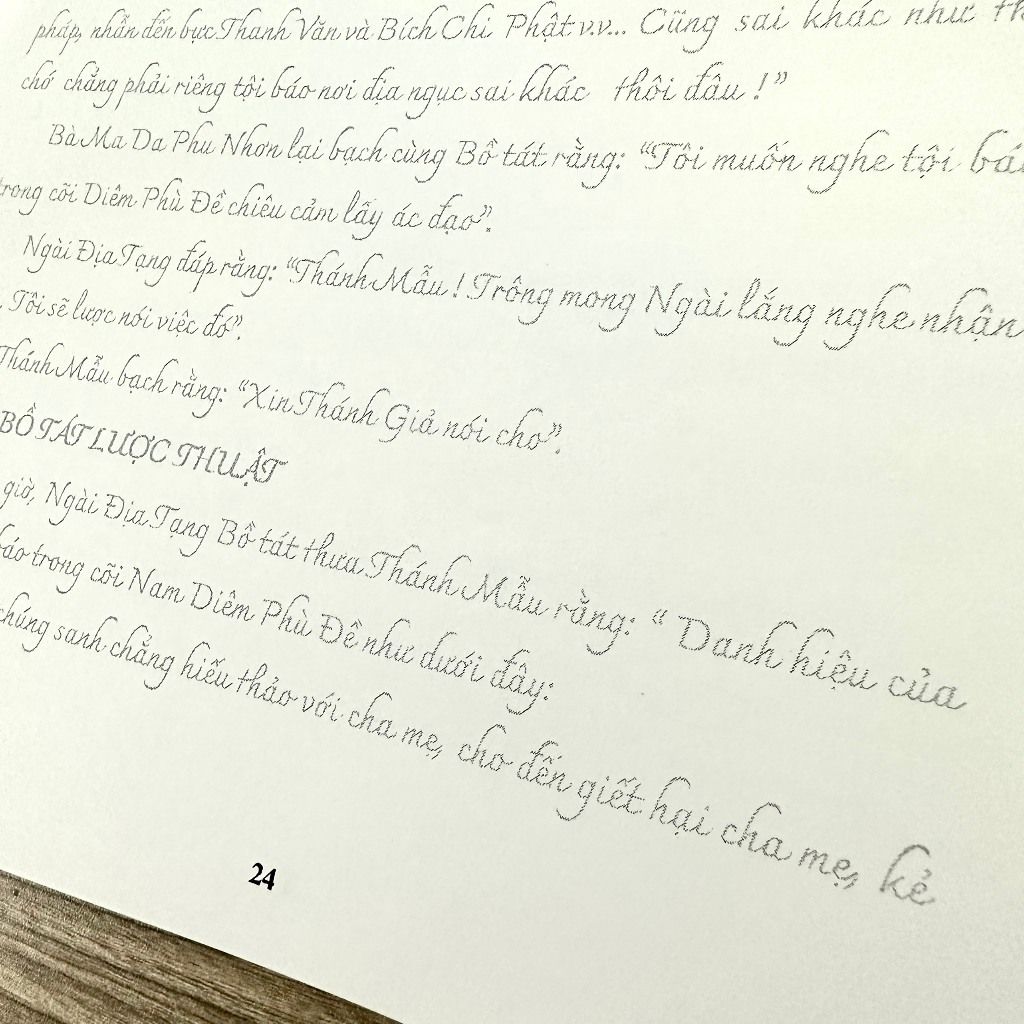 pháp, nhẫn đến bực Thanh Văn và Bích Chi Phật v.v... Cũng sai khác như
chớ chẳng phải riêng tội báo nơi địa ngục sai khác thôi đâu !”
Bà Ma Da Phu Nhơn lại bạch cùng Bồ tát rằng: “Tôi muốn nghe tội
trong cõi Diêm Phù Đề chiêu cảm lấy ác đạo”.
Ngài Địa Tạng đáp rằng: “Thánh Mẫu ! Trông mong Ngài lắng nghe nhận
. Tôi sẽ lược nói việc đó”.
Thánh Mẫu bạch rằng: “Xin Thánh Giả nói cho”.
BỒ TÁT LƯỢC THUẬT
giờ, Ngài Địa Tạng Bồ tát thưa Thánh Mẫu rằng: “ Danh hiệu của
báo trong cõi Nam Diêm Phù Đề như dưới đây:
chúng sanh chẳng hiếu thảo với cha mẹ, cho đến giết hại cha mẹ, kẻ
24